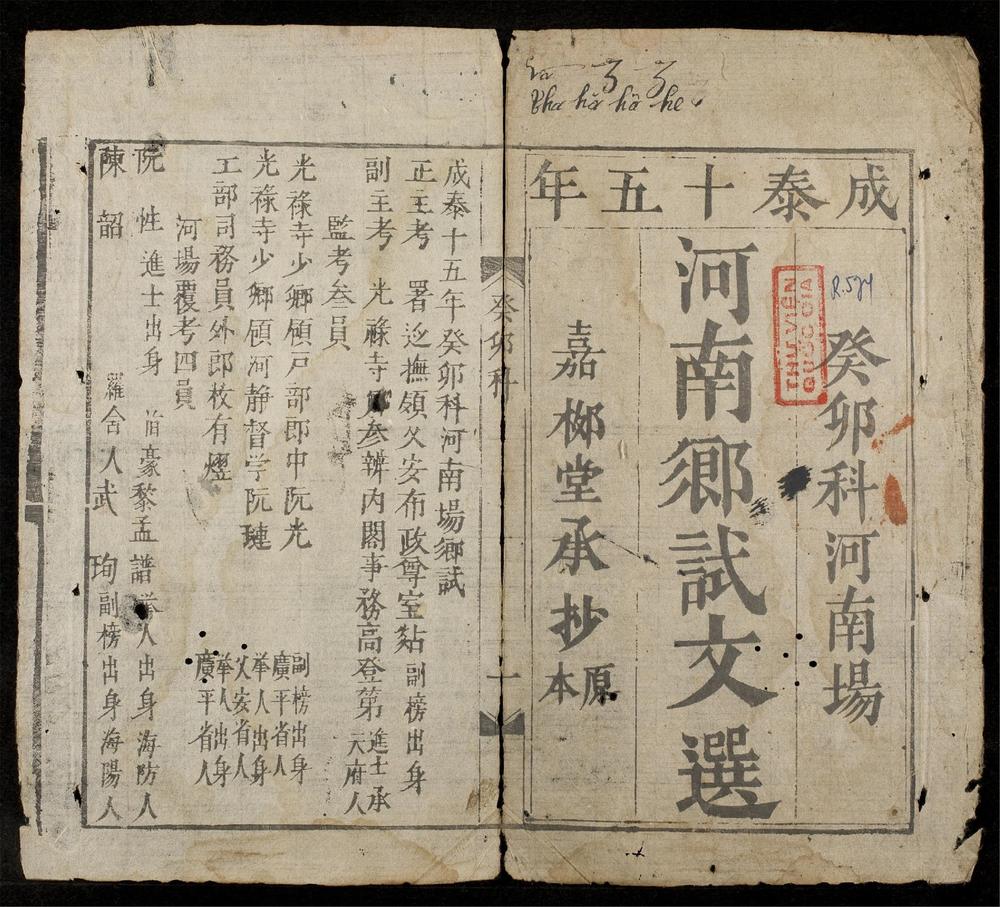 Bha hă hô he
成泰十五年
癸卯科河南場
R.574
THƯ VIỆN
QUỐC GIA
河南鄉試文選
嘉柳堂承抄原本
癸卯科
一
成泰十五年癸卯科河南場鄉試
正主考 署 撫領乂安布政尊室 副榜出身
副主考 光祿寺 參辨內閣事務高登第 進士承天府人
監考叁員
光祿寺少卿領戶部郎中阮光 副榜出身廣平省人
光祿寺少卿領河静督学阮 举人出身乂安省人
工部司務員外郎枚有 举人出身廣平省人
河場覆考四員
阮 性 進士出身 豪黎孟 譜 举人出身海防人
陳 韶 羅舍人武 珣 副榜出身海陽人